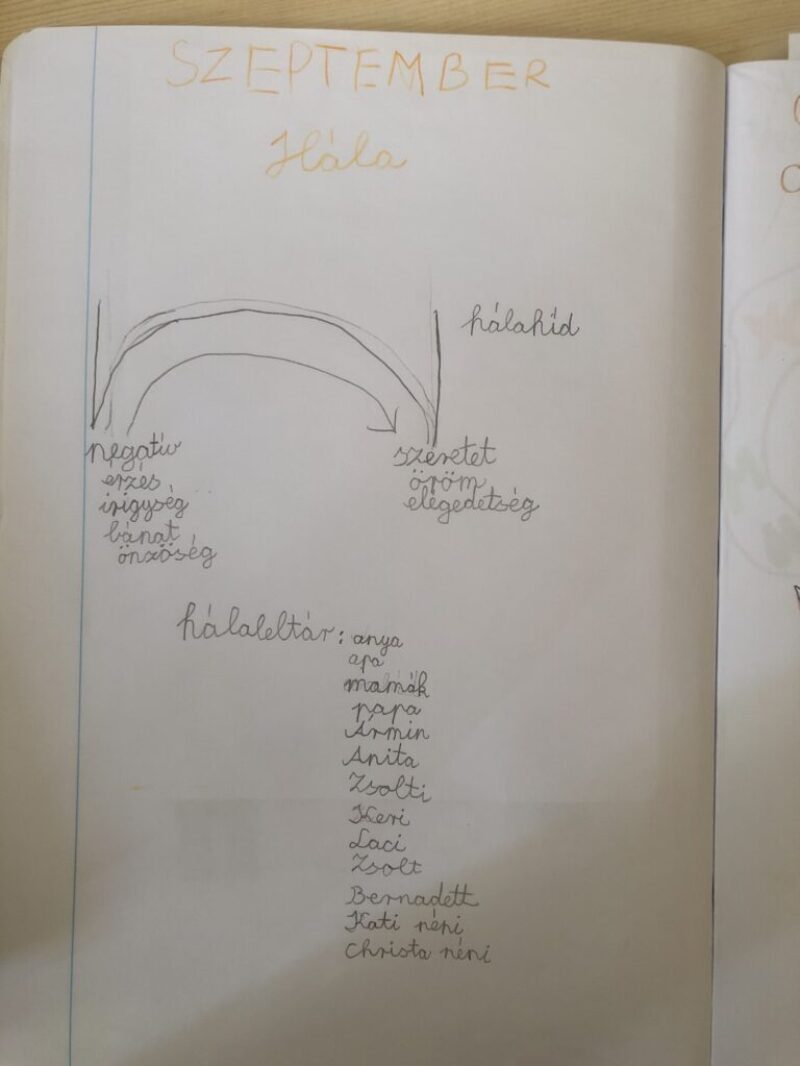 SZEPTEMBER
Hála
hálahíd
negatív
érzés
irigység
bánat
önzőség
szeretet
öröm
elégedetség
hálaleltár: anya
apa
mamák
papa
Ármin
Anita
Zsolti
Keri
Laci
Zsolt
Bernadett
Kati néni
Christa néni